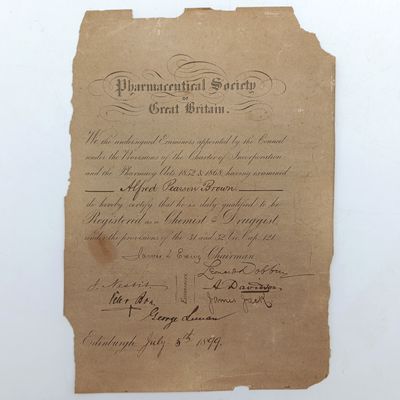 Pharmaceutical Society
OF
Great Britain.
We the undersigned Examiners appointed by the Council
under the Provisions of the Charter of Incorporation
and the Pharmacy Acts 1852 & 1868, having examined
Alfred Pearson Brown
do hereby certify that he is duly qualified to be
Registered as a Chemist & Druggist,
under the provisions of the 31 and 32 Vic. Cap. 121.
Chairman
Leonard Dobbin
J. Nesbit
A Davidson
Peter
Examiners
James Jack
George
Edinburgh, July 5th 1899.